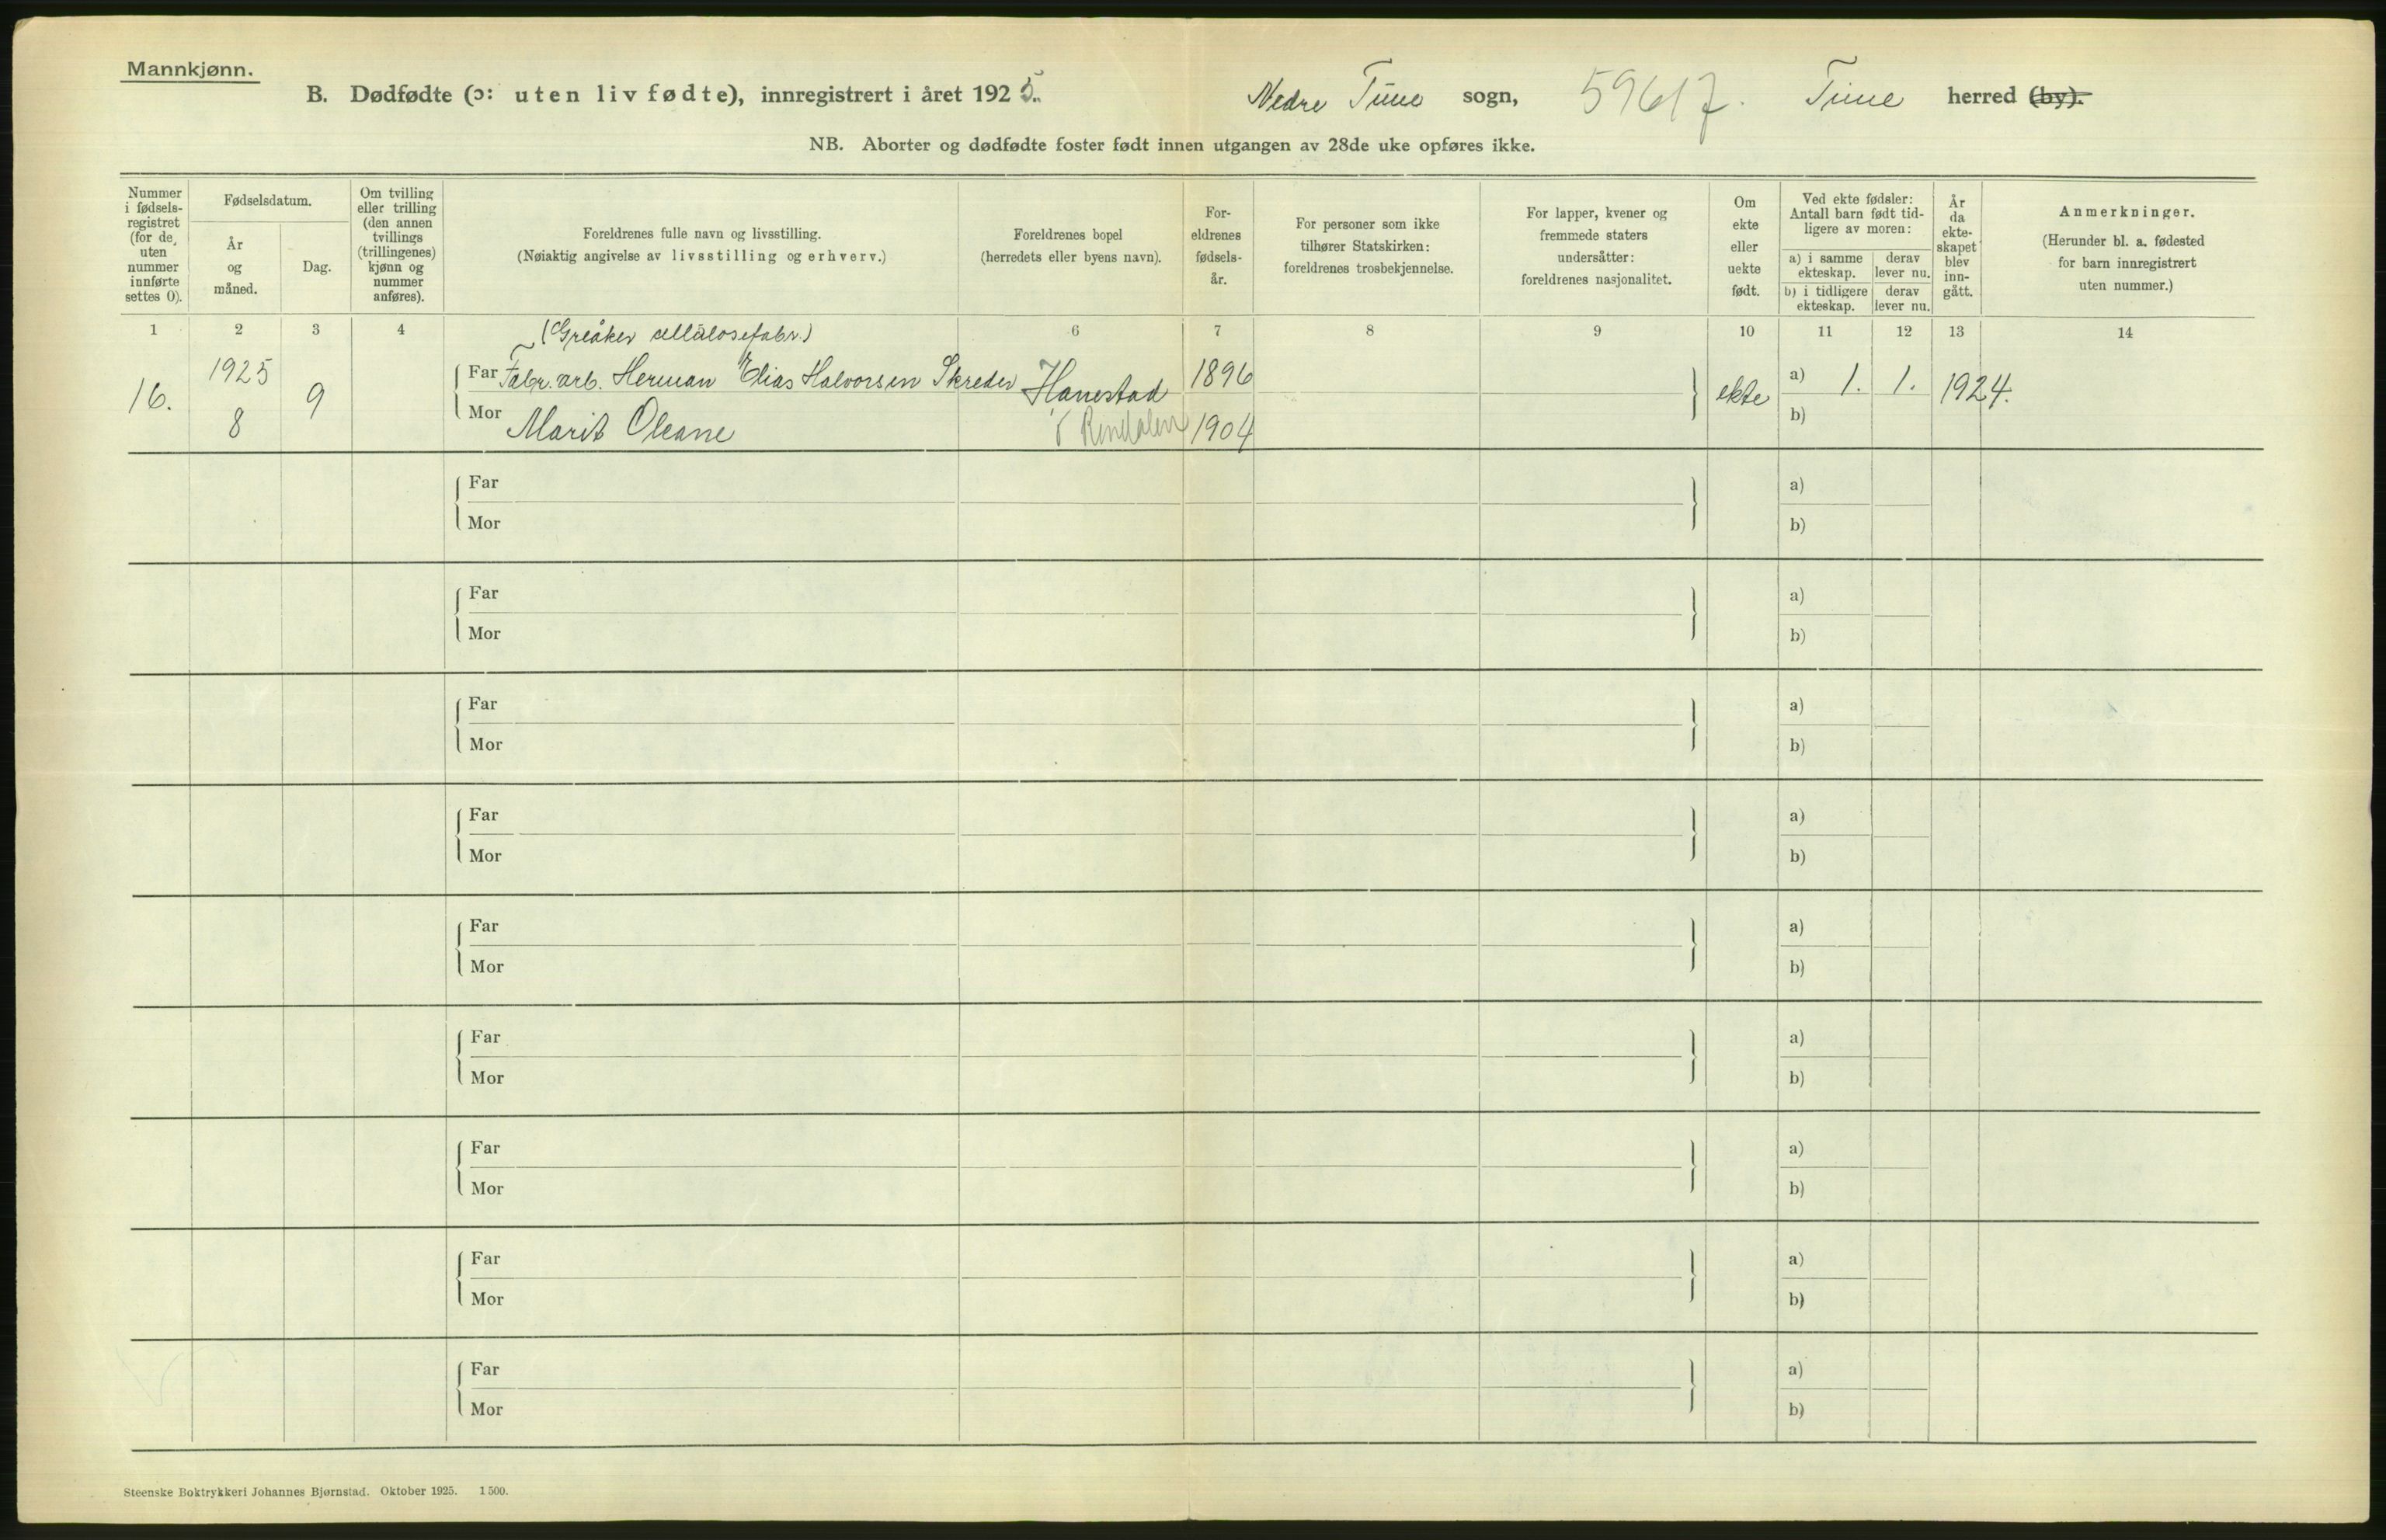 Mannkjønn.
B. Dødfødte (ɔ: uten liv fødte), innregistrert i året 1925. Nedre Tune sogn, 59617. Tune herred (by).
NB. Aborter og dødfødte foster født innen utgangen av 28de uke opføres ikke.
Nummer i fødsels-registret (for de uten nummer innførte settes 0).
Fødselsdatum.
År og måned.
Dag.
Om tvilling eller trilling (den annen tvillings (trillingenes) kjønn og nummer anføres).
Foreldrenes fulle navn og livsstilling.
(Nøiaktig angivelse av livsstilling og erhverv.)
Foreldrenes bopel
(herredets eller byens navn).
For-eldrenes fødsels-år.
For personer som ikke tilhører Statskirken: foreldrenes trosbekjennelse.
For lapper, kvener og fremmede staters undersåtter: foreldrenes nasjonalitet.
Om ekte eller uekte født.
Ved ekte fødsler: Antall barn født tid-ligere av moren:
a) i samme ekteskap. derav lever nu.
b) i tidligere ekteskap. derav lever nu.
År da ekte-skapet blev inn-gått.
Anmerkninger.
(Herunder bl. a. fødested for barn innregistrert uten nummer.)
1 2 3 4 6 7 8 9 10 11 12 13 14
(Greåker cellulosefabr.)
16. 1925 8 9 Far Fabr. arb. Herman Elias Halvorsen Skreder Hanestad 1896 ekte a) 1. 1. 1924.
Mor Marit Oleane i Rendalen 1904 b)
Far a)
Mor b)
Far a)
Mor b)
Far a)
Mor b)
Far a)
Mor b)
Far a)
Mor b)
Far a)
Mor b)
Far a)
Mor b)
Far a)
Mor b)
Far a)
Mor b)
Steenske Boktrykkeri Johannes Bjørnstad. Oktober 1925. 1500.